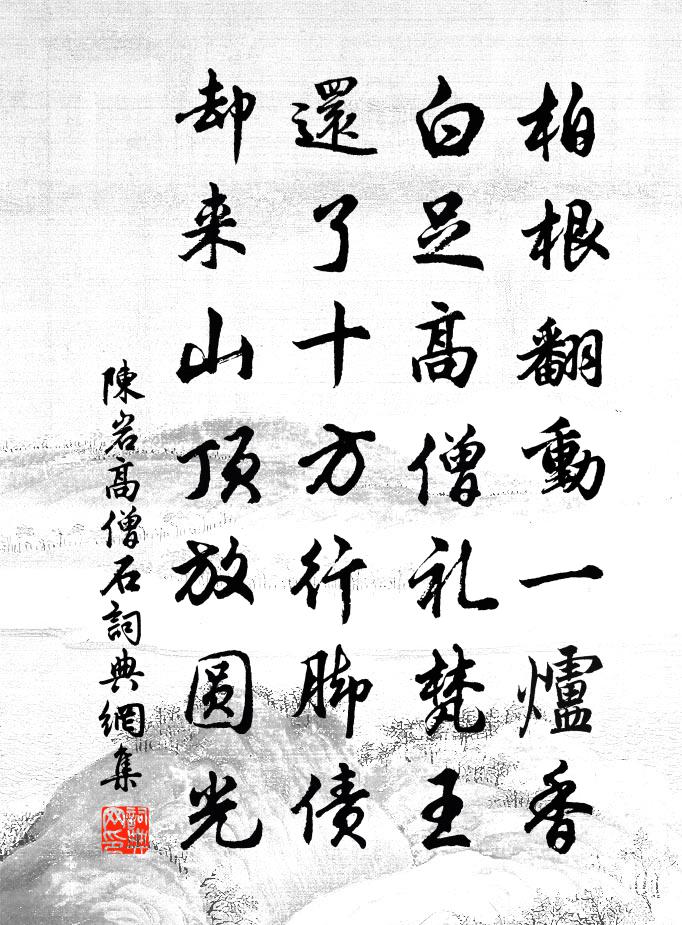 柏根翻動一爐香
白足高僧礼梵王
還了十方行脚债
却来山顶放圆光
陳岩高僧石詞典網集